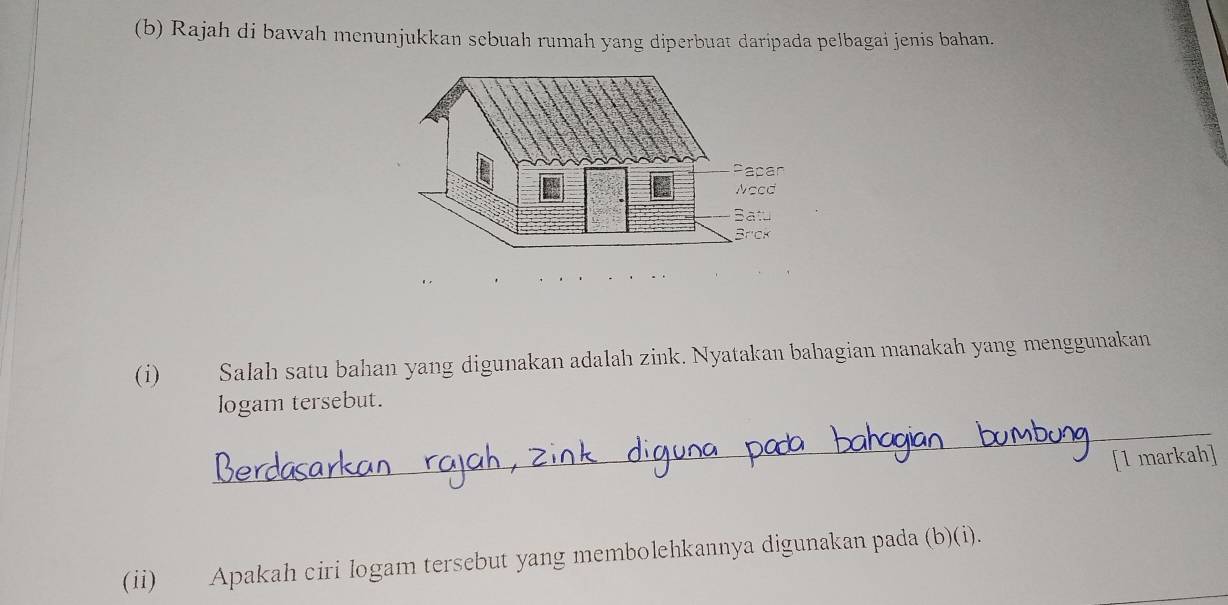 (b) Rajah di bawah menunjukkan sebuah rumah yang diperbuat daripada pelbagai jenis bahan.
Papan
Wood
Batu
Brick
(i) Salah satu bahan yang digunakan adalah zink. Nyatakan bahagian manakah yang menggunakan
logam tersebut.
Berdasarkan rajah, zink diguna pada bahagian bumbung
[1 markah]
(ii) Apakah ciri logam tersebut yang membolehkannya digunakan pada (b)(i).